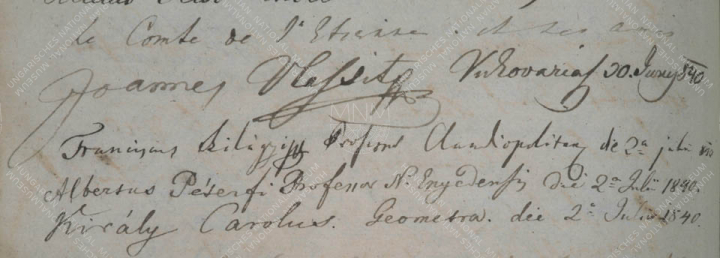 le Comte de l'Etienne . et ses amis
Joannes Vlassits Vukovarias 30 Juny 840
Franciscus Professor Claudiopolitan die 2a julii
Albertus Péterfi Professor N. Enyedensis die 2a Julii 1840.
Király Carolus. Geometra. die 2a Julii 1840.